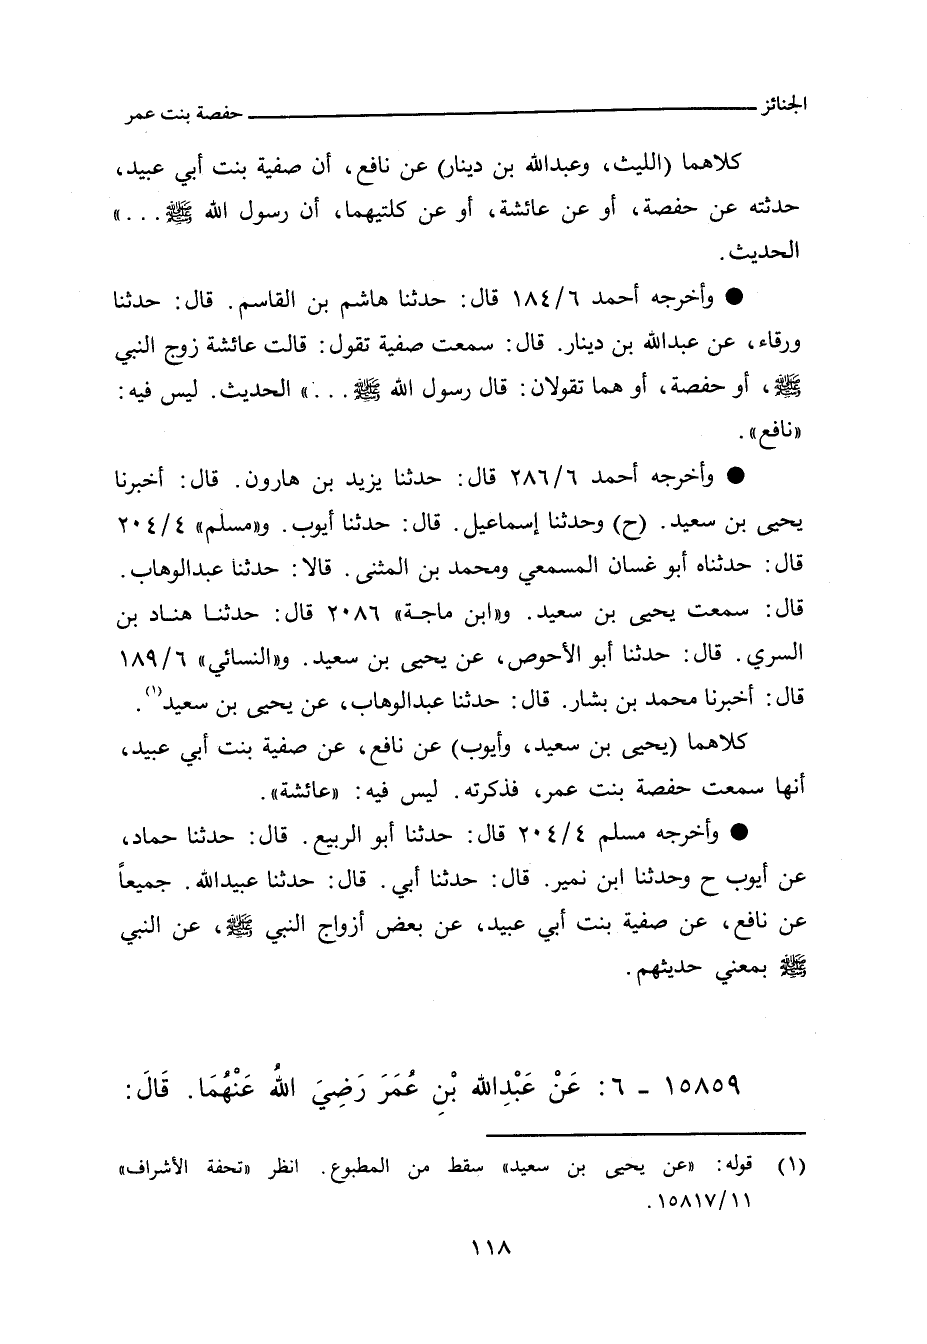 الجنائز ــــــــــــــــــــ حفصة بنت عمر
كلاهما (الليث، وعبدالله بن دينار) عن نافع، أن صفية بنت أبي عبيد،
حدثته عن حفصة، أو عن عائشة، أو عن كلتيهما، أن رسول الله ﷺ . . .»
الحديث.
● وأخرجه أحمد ٦/ ١٨٤ قال: حدثنا هاشم بن القاسم. قال: حدثنا
ورقاء، عن عبدالله بن دينار. قال: سمعت صفية تقول: قالت عائشة زوج النبي
ﷺ، أو حفصة، أو هما تقولان: قال رسول الله ﷺ . . .» الحديث. ليس فيه:
«نافع».
● وأخرجه أحمد ٦/ ٢٨٦ قال: حدثنا يزيد بن هارون. قال: أخبرنا
يحيى بن سعيد. (ح) وحدثنا إسماعيل. قال: حدثنا أيوب. و«مسلم» ٤/ ٢٠٤
قال: حدثناه أبو غسان المسمعي ومحمد بن المثنى. قالا: حدثنا عبدالوهاب.
قال: سمعت يحيى بن سعيد. و«ابن ماجة» ٢٠٨٦ قال: حدثنا هناد بن
السري. قال: حدثنا أبو الأحوص، عن يحيى بن سعيد. و«النسائي» ٦/ ١٨٩
قال: أخبرنا محمد بن بشار. قال: حدثنا عبدالوهاب، عن يحيى بن سعيد(١).
كلاهما (يحيى بن سعيد، وأيوب) عن نافع، عن صفية بنت أبي عبيد،
أنها سمعت حفصة بنت عمر، فذكرته. ليس فيه: «عائشة».
● وأخرجه مسلم ٤/ ٢٠٤ قال: حدثنا أبو الربيع. قال: حدثنا حماد،
عن أيوب ح وحدثنا ابن نمير. قال: حدثنا أبي. قال: حدثنا عبيدالله. جميعاً
عن نافع، عن صفية بنت أبي عبيد، عن بعض أزواج النبي ﷺ، عن النبي
ﷺ بمعني حديثهم.
١٥٨٥٩ ـ ٦: عَنْ عَبْدِالله بْنِ عُمَرَ رَضِيَ اللهُ عَنْهُمَا. قَالَ:
(١) قوله: «عن يحيى بن سعيد» سقط من المطبوع. انظر «تحفة الأشراف»
١١/ ١٥٨١٧.
١١٨